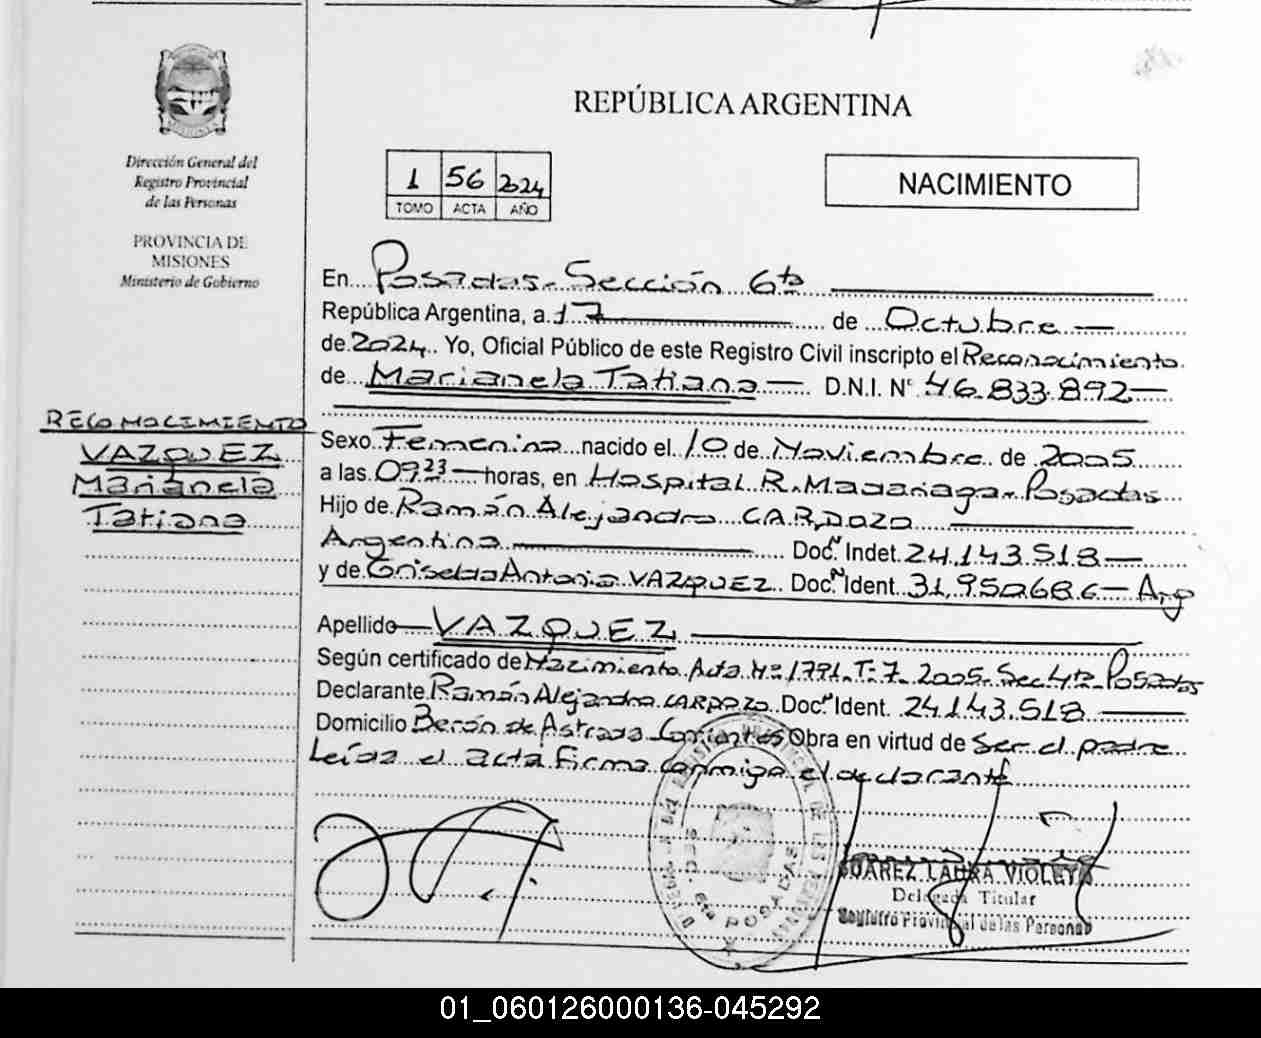 REPÚBLICA ARGENTINA
Dirección General del
Registro Provincial
de las Personas
PROVINCIA DE
MISIONES
Ministerio de Gobierno
1 56 2024
TOMO ACTA AÑO
NACIMIENTO
En Posadas - Sección 6ta
República Argentina, a 17 de Octubre
de 2024. Yo, Oficial Público de este Registro Civil inscripto el Reconocimiento
de Marianela Tatiana D.N.I. N° 46.833.892
RECONOCIMIENTO
VAZQUEZ
Marianela
Tatiana
Sexo Femenino nacido el 10 de Noviembre de 2005
a las 09 23 horas, en Hospital R. Madariaga - Posadas
Hijo de Ramón Alejandro CARDOZO
Argentino Doc. N° Indet. 24.143.518
y de Griselda Antonia VAZQUEZ Doc. N° Ident. 31.950686 Arg
Apellido VAZQUEZ
Según certificado de Nacimiento Acta N° 1791 T-7 2005 Sec 4ta Posadas
Declarante Ramón Alejandro CARDOZO Doc. N° Ident. 24.143.518
Domicilio Berón de Astrada Corrientes Obra en virtud de Ser el padre
Leída el acta firma conmigo el declarante
SUAREZ LAURA VIOLETA
Delegada Titular
Registro Provincial de las Personas
01_060126000136-045292